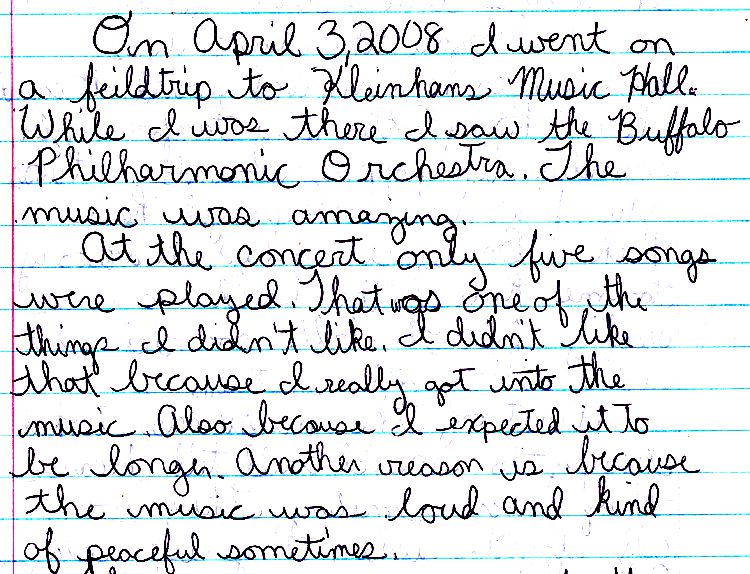 On April 3, 2008 I went on
a feildtrip to Kleinhans Music Hall.
While I was there I saw the Buffalo
Philharmonic Orchestra. The
music was amazing.
At the concert only five songs
were played. That was one of the
things I didn't like. I didn't like
that because I really got into the
music. Also because I expected it to
be longer. Another reason is because
the music was loud and kind
of peaceful sometimes.